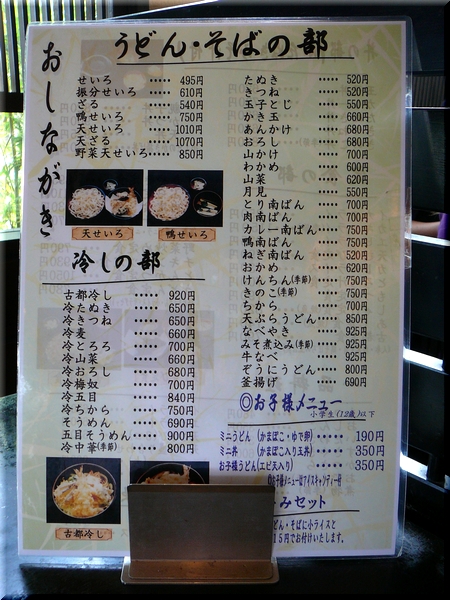 おしながき
うどん・そばの部
せいろ ‥‥‥ 495円
振分せいろ ‥‥‥ 610円
ざる ‥‥‥ 540円
鴨せいろ ‥‥‥ 750円
天せいろ ‥‥‥ 1010円
天ざる ‥‥‥ 1070円
野菜天せいろ ‥‥‥ 850円
天せいろ
鴨せいろ
冷しの部
古都冷し ‥‥‥ 920円
冷たぬき ‥‥‥ 650円
冷きつね ‥‥‥ 650円
冷麦 ‥‥‥ 660円
冷とろろ ‥‥‥ 700円
冷山菜 ‥‥‥ 660円
冷おろし ‥‥‥ 680円
冷梅奴 ‥‥‥ 700円
冷五目 ‥‥‥ 840円
冷ちから ‥‥‥ 750円
そうめん ‥‥‥ 690円
五目そうめん ‥‥‥ 900円
冷中華(季節) ‥‥‥ 800円
古都冷し
たぬき ‥‥‥ 520円
きつね ‥‥‥ 520円
玉子とじ ‥‥‥ 550円
かき玉 ‥‥‥ 660円
あんかけ ‥‥‥ 680円
おろし ‥‥‥ 680円
山かけ ‥‥‥ 700円
わかめ ‥‥‥ 600円
山菜 ‥‥‥ 620円
月見 ‥‥‥ 550円
とり南ばん ‥‥‥ 700円
肉南ばん ‥‥‥ 700円
カレー南ばん ‥‥‥ 750円
鴨南ばん ‥‥‥ 750円
ねぎ南ばん ‥‥‥ 520円
おかめ ‥‥‥ 620円
けんちん(季節) ‥‥‥ 750円
きのこ(季節) ‥‥‥ 750円
ちから ‥‥‥ 700円
天ぷらうどん ‥‥‥ 850円
なべやき ‥‥‥ 925円
みそ煮込み(季節) ‥‥‥ 925円
牛なべ ‥‥‥ 925円
ぞうにうどん ‥‥‥ 800円
釜揚げ ‥‥‥ 690円
◎お子様メニュー
小学生(12歳)以下
ミニうどん (かまぼこ・ゆで卵) ‥‥‥ 190円
ミニ丼 (かまぼこ入り玉丼) ‥‥‥ 350円
お子様うどん(エビ天入り) ‥‥‥ 350円
お子様メニューはアイスキャンディー付
みセット
どん・そばに小ライスと
15円でお付けいたします。